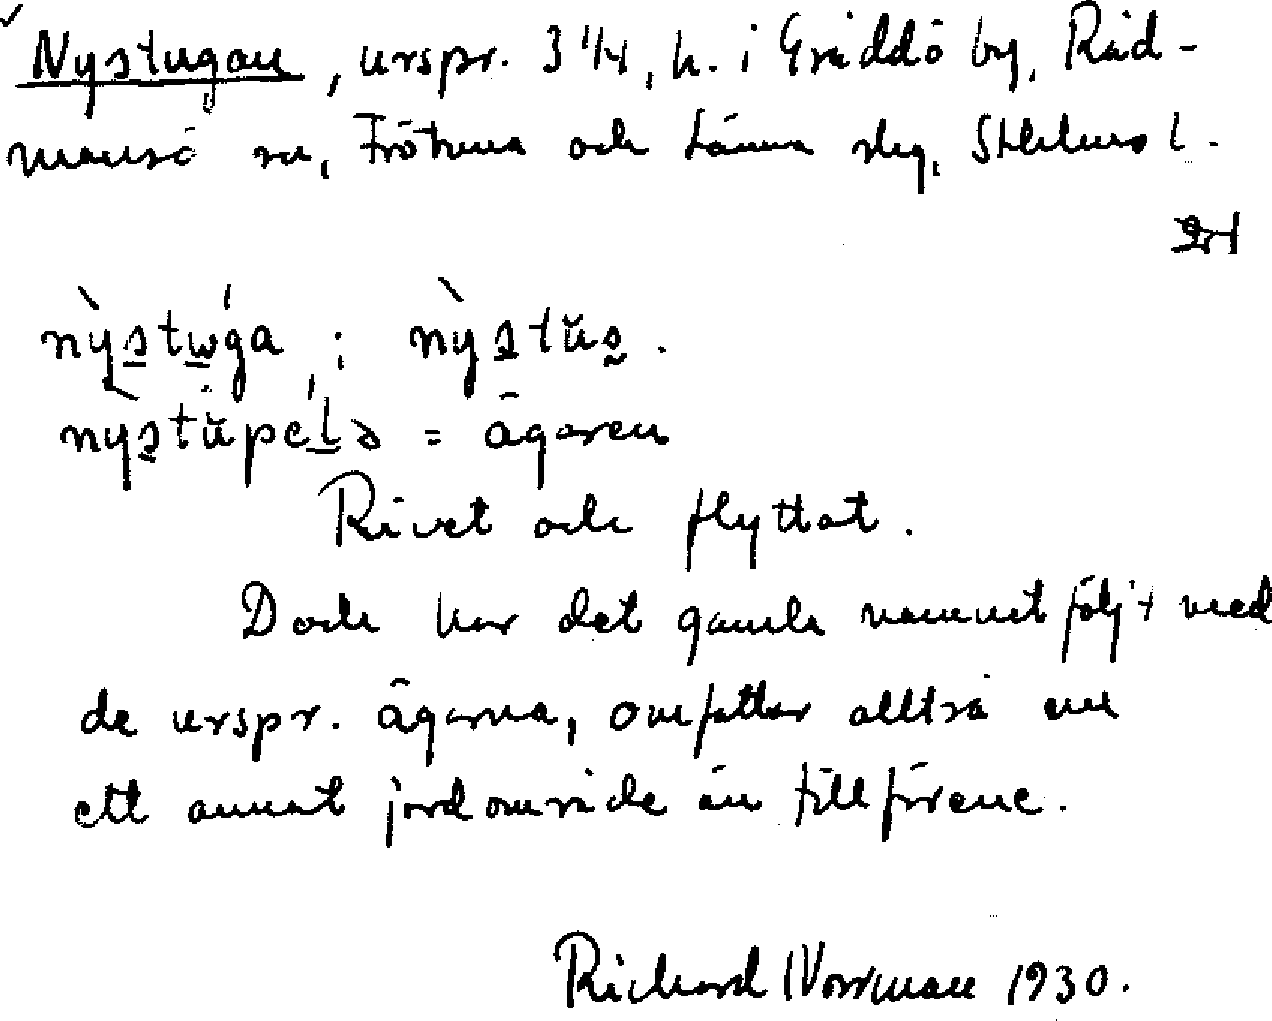 Nystugan, urspr. 3 1/4, h. i Gräddö by, Råd-
mansö sn, Frötuna och Länna slg, Sthlms l.
nỳstwǵa ; nỳstŭs.
nỳstŭpélə = ägaren
Rivet och flyttat.
Dock har det gamla namnet följt med
de urspr. ägarna, omfattar alltså nu
ett annat jordområde än tillförene.
Richard Norrman 1930.